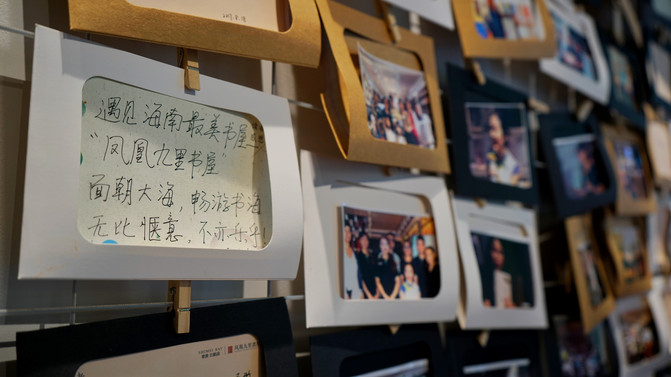 遇见海南最美书屋
“凤凰九里书屋”
面朝大海，畅游书海
无比惬意，不亦乐乎！